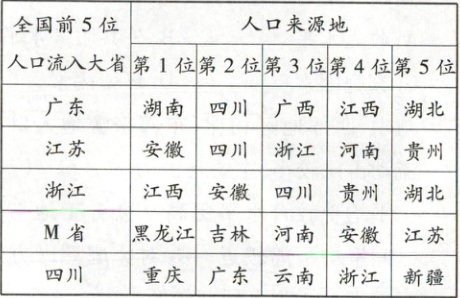 全国前5位 人口来源地
人口流入大省 第1位 第2位 第3位 第4位 第5位
广东 湖南 四川 广西 江西 湖北
江苏 安徽 四川 浙江 河南 贵州
浙江 江西 安徽 四川 贵州 湖北
M省 黑龙江 吉林 河南 安徽 江苏
四川 重庆 广东 云南 浙江 新疆